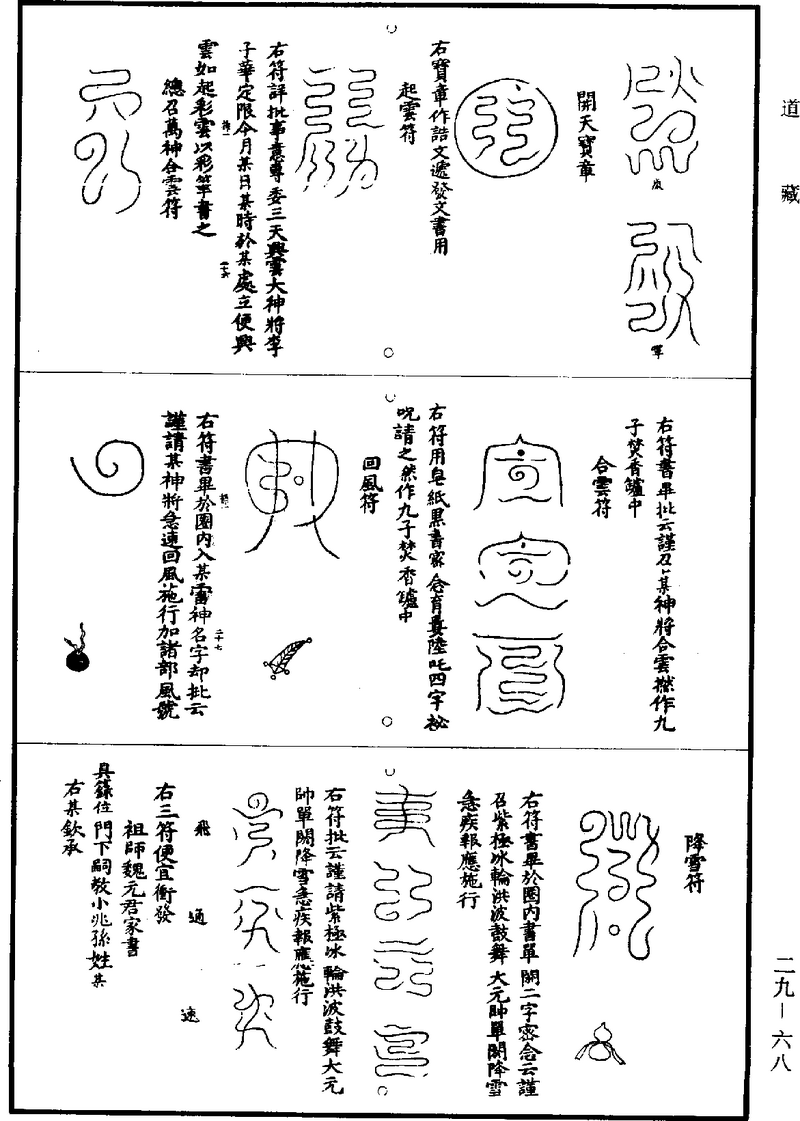 道藏
開天寶章
右寶章作誥文遞發文書用
起雲符
右符詳批事意專委三天興雲大神將李
子華定限今月某日某時於某處立便興
雲如起彩雲以彩筆書之
總召萬神合雲符
右符書畢批云謹召某神將合雲㨗作九
子焚香罏中
合雲符
右符用皂紙黑書密念育㬪陸吒四字祕
呪請之然作九子焚香罏中
回風符
右符書畢於圈內入某雷神名字却批云
謹請某神將急速回風施行加諸部風號
降雪符
右符書畢於圈內書單開二字密念云謹
召紫極冰輪洪波鼓舞大元帥單開降雪
急疾報應施行
右符批云謹請紫極冰輪洪波鼓舞大元
帥單開降雪急疾報應施行
飛
通
速
右三符便宜衝發
祖師魏元君家書
具籙位門下嗣教小兆孫姓某
右某欽承
二九—六八